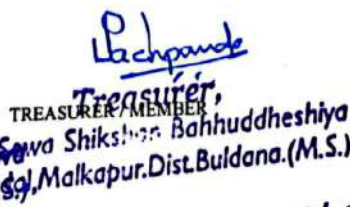 Treasurer,
TREASURER / MEMBER
Shikshan Bahhuddheshiya
Malkapur.Dist.Buldana.(M.S.)